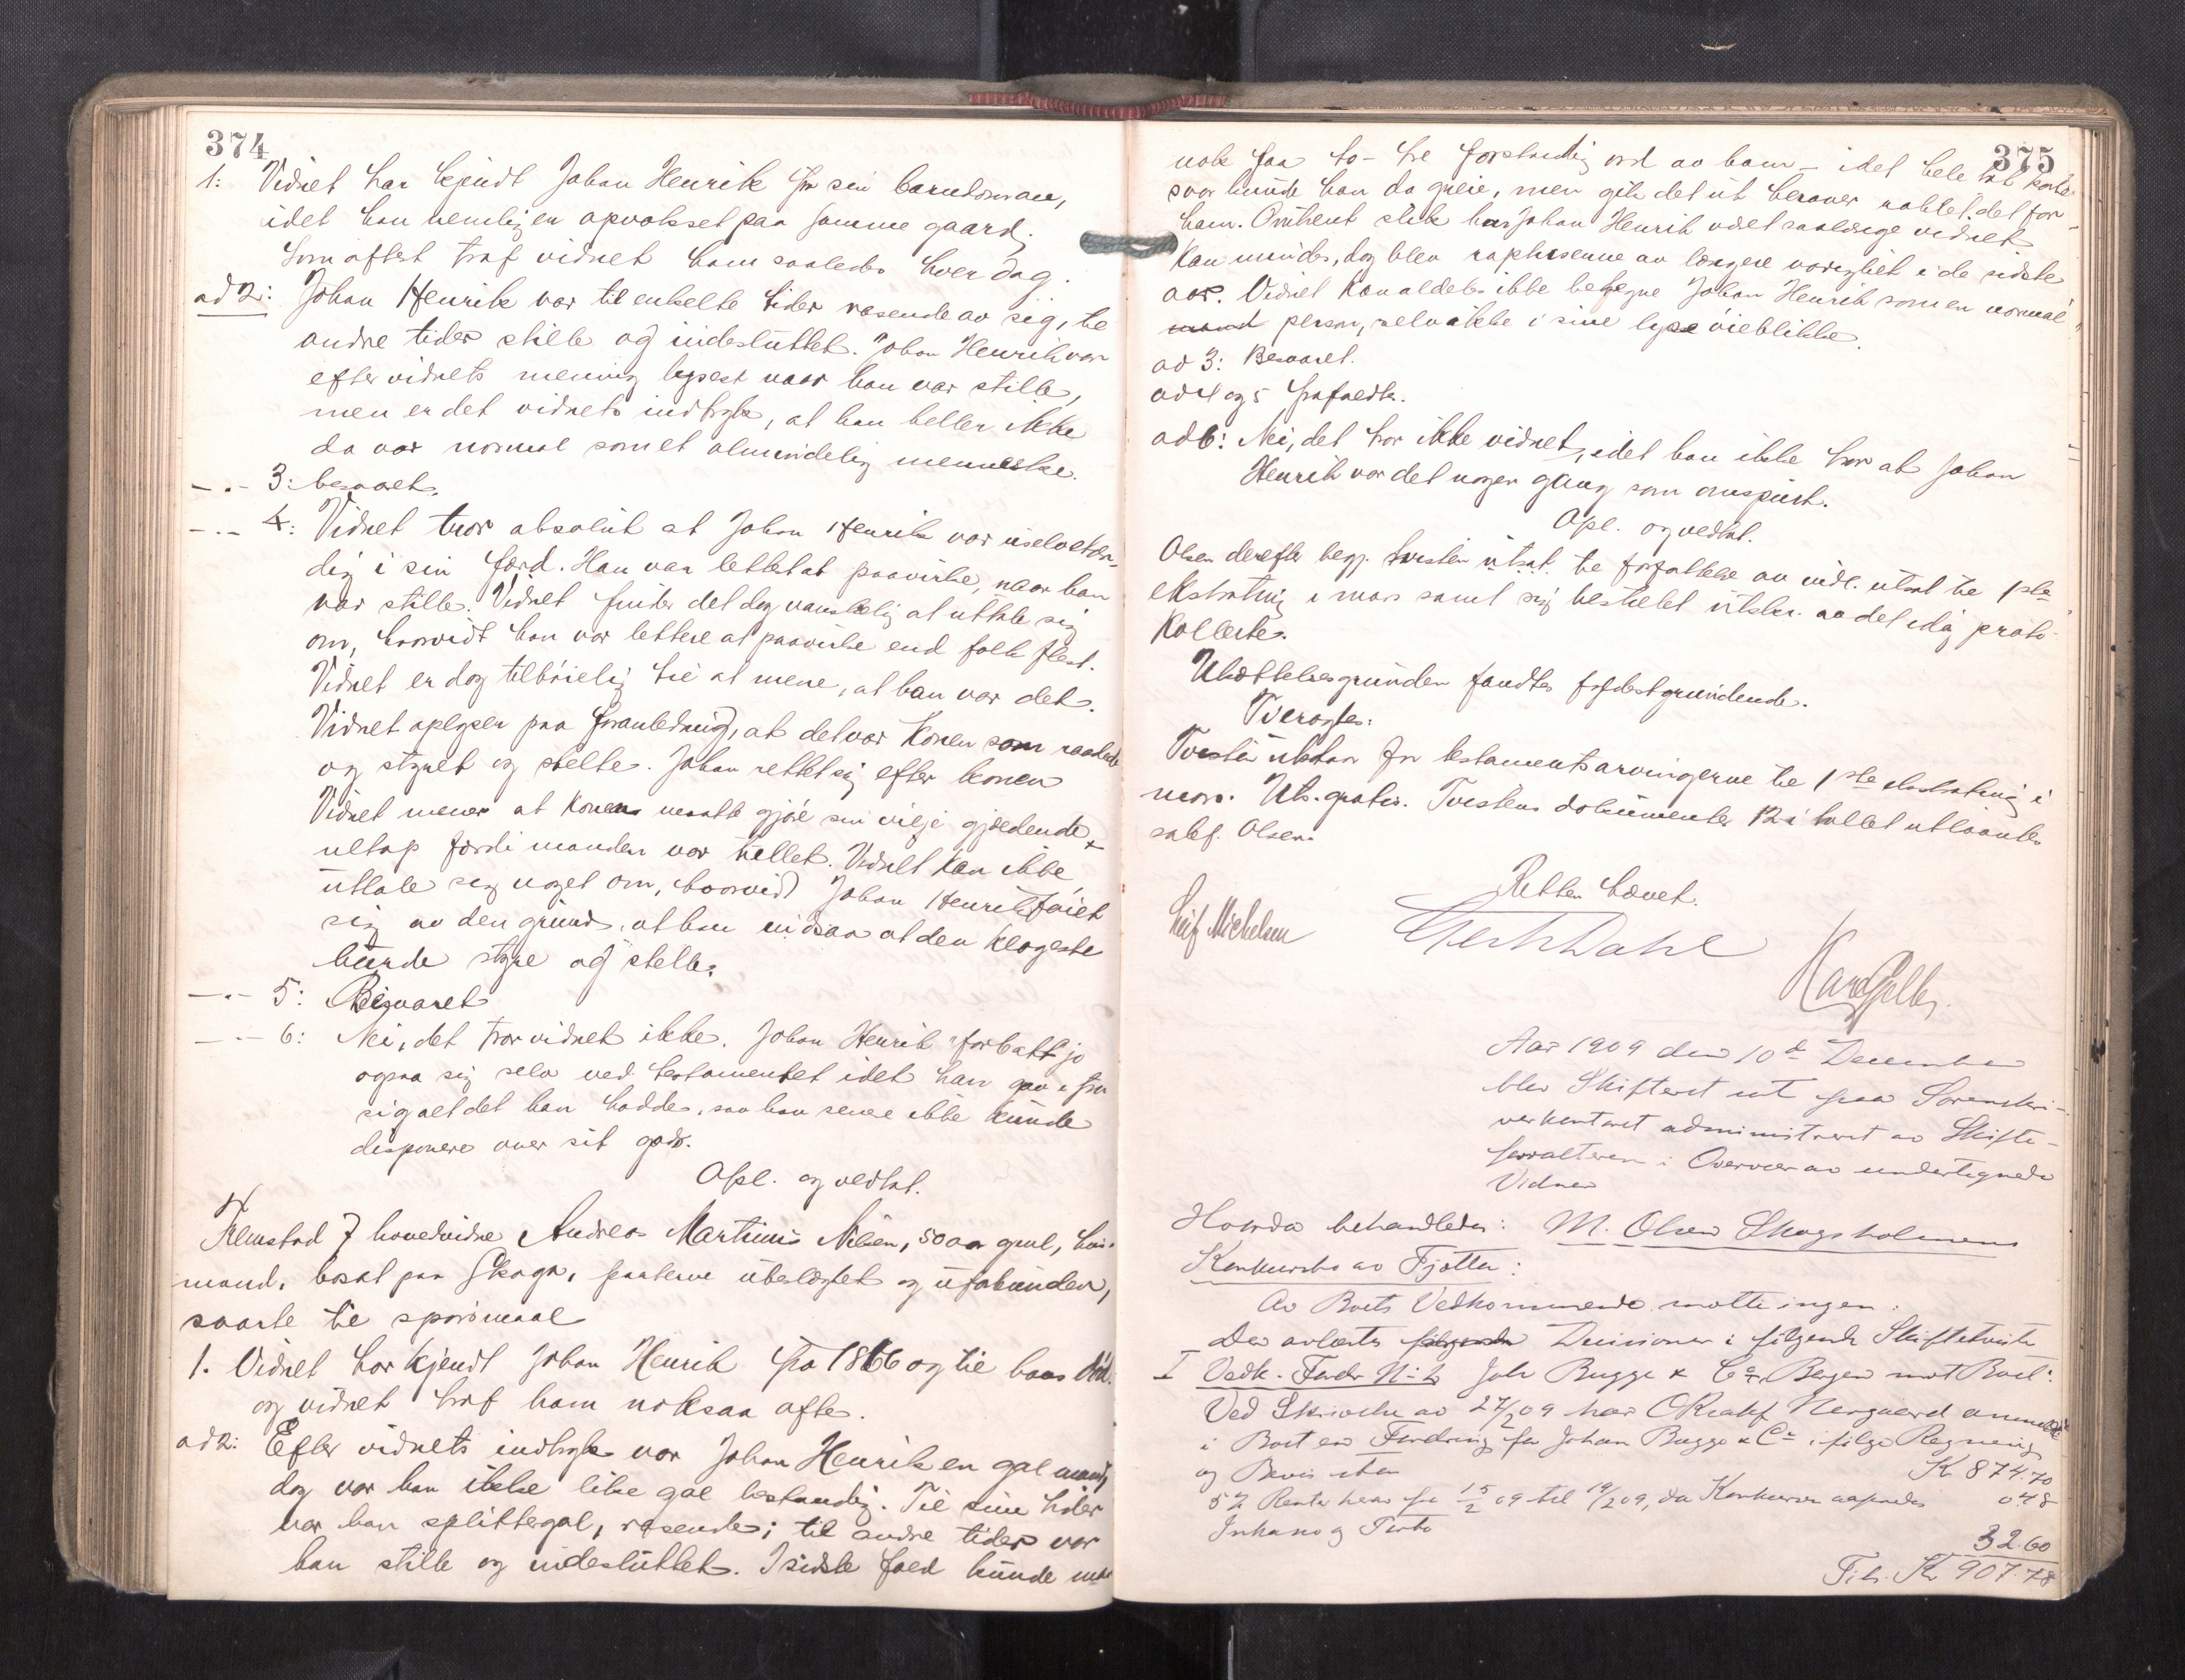 374
1: Vidnet har kjendt Johan Henrik fra sin barndom av,
idet han nemlig er opvokset paa samme gaard.
Som oftest traf vidnet ham saaledes hver dag.
ad 2: Johan Henrik var til enkelte tider rasende av sig, til
andre tider stille og indesluttet. Johan Henrik var
efter vidnets mening lysest naar han var stille,
men er det vidnets indtryk, at han heller ikke
da var normal som et almindelig menneske.
-"- 3: besvaret.
-"- 4: Vidnet tror absolut at Johan Henrik var uselvstæn-
dig i sin færd. Han var let at paavirke, naar han
var stille. Vidnet finder det dog vanskelig at uttale sig
om, hvorvidt han var lettere at paavirke end folk flest.
Vidnet er dog tilbøielig til at mene, at han var det.
Vidnet oplyser paa foranledning, at det var konen som raadet
og styret og stelte. Johan rettet sig efter konen
Vidnet mener at konen maatte gjøre sin vilje gjældende
netop fordi manden var tullet. Vidnet kan ikke
uttale sig noget om, hvorvidt Johan Henrik føiet
sig av den grund, at han indsaa at den klogeste
burde styre og stelle.
-"- 5: Besvaret
-"- 6: Nei, det tror vidnet ikke. Johan Henrik "forbatt" jo
ogsaa sig selv ved testamentet idet han gav ifra
sig alt det han hadde, saa han senere ikke kunde
disponere over sit gods.
Opl. og vedtat.
Fremstod 7 hovedvidne Andreas Martinus Nilsen, 50 aar gml, hus-
mand, bosat paa Skaga, parterne ubeslægtet og uforbunden,
svarte til spørsmaal
1. Vidnet har kjendt Johan Henrik fra 1866 og til hans død.
og vidnet traf ham noksaa ofte.
ad 2: Efter vidnets indtryk var Johan Henrik en gal mand,
dog var han ikke like gal bestandig. Til sine tider
var han splittegal, rasende; til andre tider var
han stille og indesluttet. I sidste fald kunde man
375
nok faa to-tre forstandig ord av ham - idet hele tat korte
svar kunde han da greie, men gik det ut herover rablet det for
ham. Omtrent slik har Johan Henrik været saalænge vidnet
kan mindes, dog blev raptusene av længere varighet i de sidste
aar. Vidnet kan aldeles ikke betegne Johan Henrik som en normal
mand person, selv ikke i sine lyse øieblikke.
ad 3: Besvaret.
ad 4 og 5 frafaldt.
ad 6: Nei, det tror ikke vidnet, idet han ikke tror at Johan
Henrik var det nogen gang som omspurt.
Opl. og vedtat.
Olsen derefter begj. tvisten utsat til forfattelse av indl. utsat til 1ste
ekstrating i mars samt sig bestillet utskr. av det idag proto-
kollerte.
Utsættelsesgrunden fandtes fyldestgjørende.
Ti eragtes:
Tvisten utstaar for testamentsarvingerne til 1ste ekstrating i
mars. Uts. gratis. Tvistens dokumenter 12 i tallet utlaantes
sakf. Olsen.
Retten hævet.
Leif Michelsen
Gerh Dahl
Aar 1909 den 10de December
blev Skifteret sat paa Sorenskri-
verkontoret administreret av Skifte-
forvalteren i Overvær av undertegnede
Vidner
Hvorda behandledes: M. Olsen Skogsholmens
Konkursbo av Tjøtta:
Av Boets Vedkommende møtte ingen.
Der avlæstes følgende Decisioner i følgende Skiftetvister
I Vedk. Fordr. No 2 Joh Bugge & Co, Bergen mot Boet:
Ved Skrivelse av 27/2 09 har Neergaard anmeldt
i Boet en Fordring for Johan Bugge & Co ifølge Regning
og Bevis stor Kr 874.70
5% Renter herav fra 15/2 09 til 19/2 09, da Konkursen aapnedes 0.48
Inkasso og 32.60
Tils. Kr 907.78